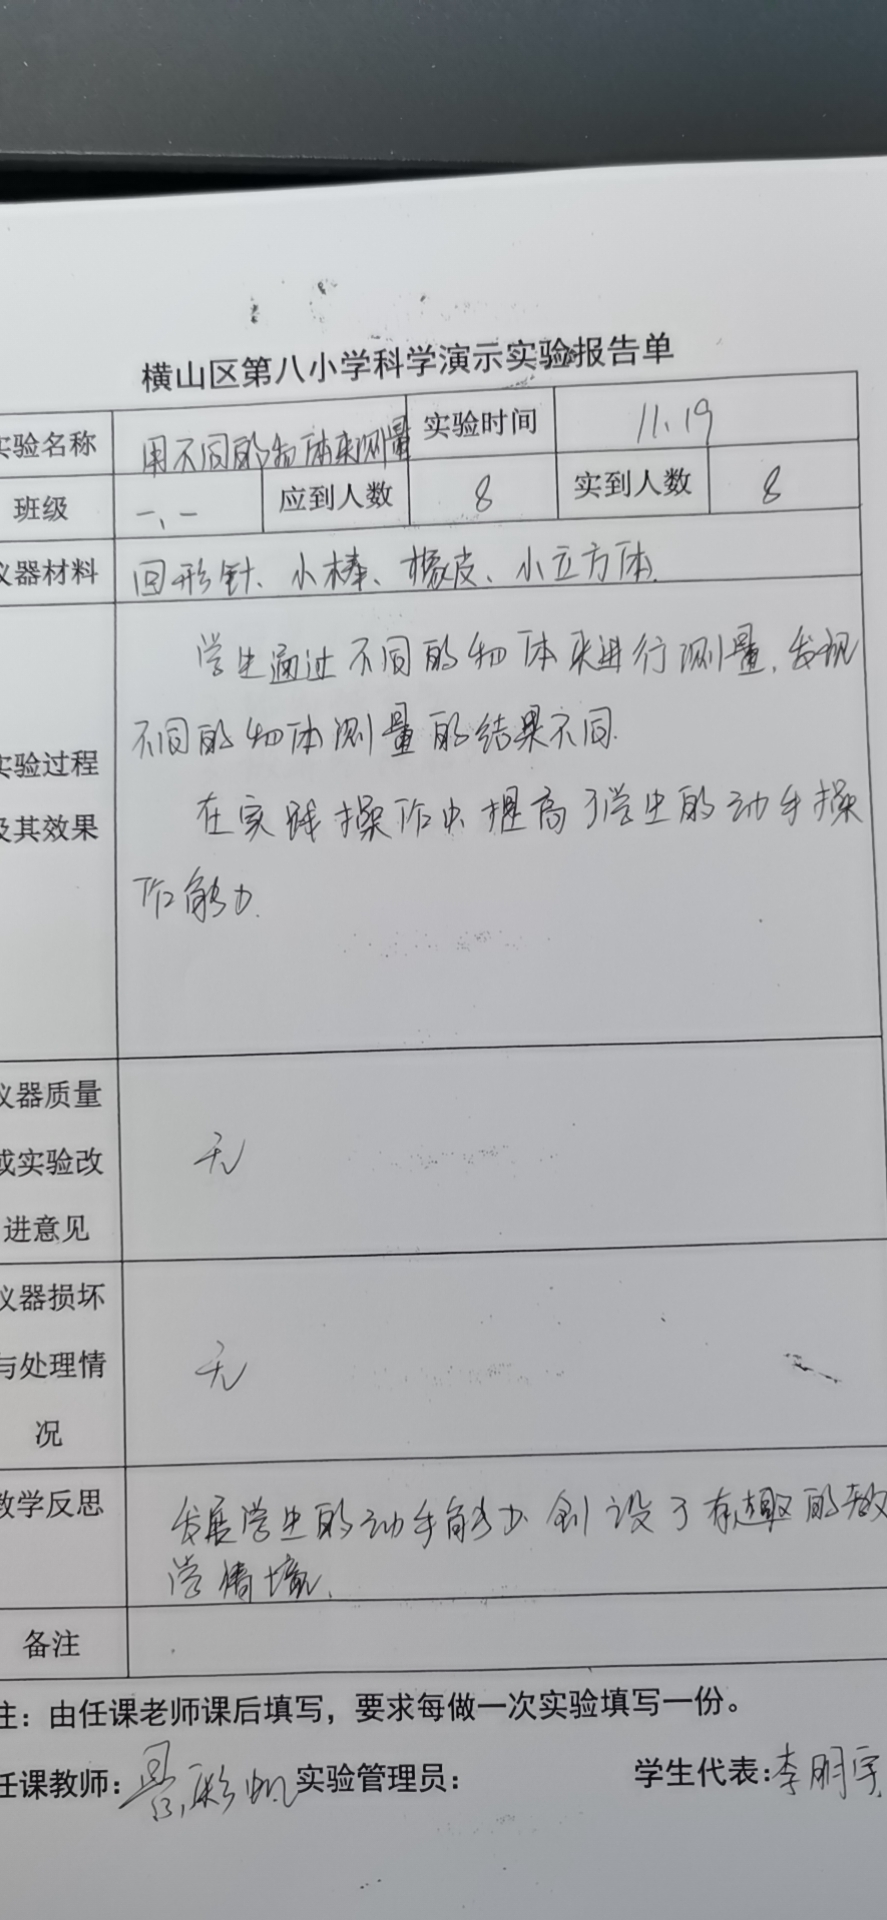 横山区第八小学科学演示实验报告单
实验名称 用不同的物体来测量 实验时间 11.19
班级 一、一 应到人数 8 实到人数 8
仪器材料 回形针、小棒、橡皮、小立方体.
学生通过不同的物体来进行测量,发现
不同的物体测量的结果不同.
实验过程
及其效果
在实践操作中提高了学生的动手操
作能力.
仪器质量
或实验改
进意见
无
仪器损坏
与处理情
况
无
教学反思 发展学生的动手能力 创设了有趣的教
学情境.
备注
注：由任课老师课后填写，要求每做一次实验填写一份。
任课教师: 实验管理员： 学生代表:李明宇